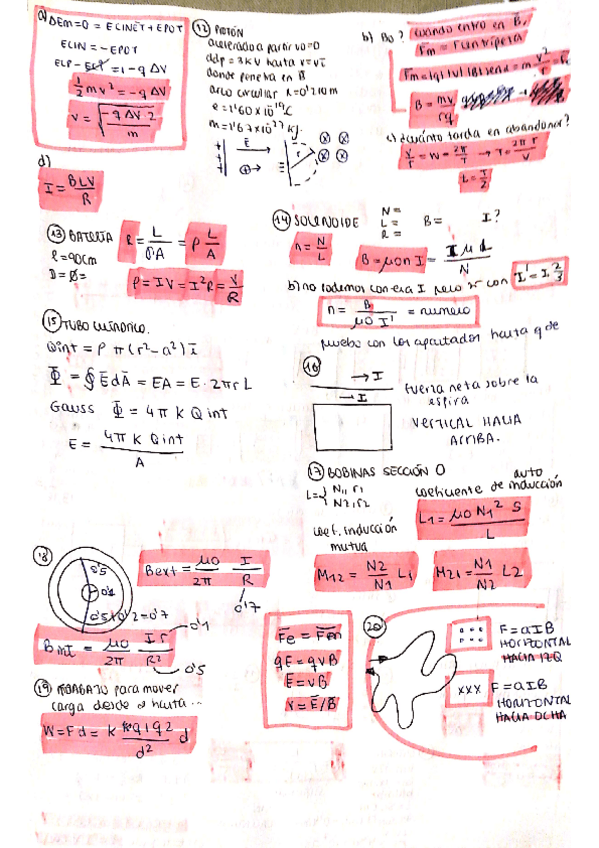 a) ΔEm=0 = ECINÉT + EPOT
ECIN = -EPOT
= -q ΔV
½ m v² = -q ΔV
V = √(-q ΔV 2 / m)
d)
I = BLV / R
12 PROTÓN
acelerado a partir v=0
ddp = 3KV hasta v=vi
donde penetra en B
arco circular R=0'210m
e = 1'60 x 10⁻¹⁹C
m = 1'67x10⁻²⁷ kg.
E
b) Bo? cuando entro en B,
Fm = Fcentrípeta
Fm = |q| |v| |B| send = m v²/r = Fc
B = mv / rq
c) ¿cuánto tarda en abandonar?
V/r = W = 2π/T → T = 2π r / V
t = T/2
13 BATERÍA
l = 90cm
D = Ø =
R = L / σA = ρ L/A
P = IV = I²R = V/R
14 SOLENOIDE
N=
L=
R=
B=
I?
n = N/L
B = μ0 n I = I μ L / N
b) no rodemos con esa I pero si con I' = I 2/3
n = B / μ0 I' = numero
pruebo con los apartados hasta q de
15 TUBO CILÍNDRICO.
Qint = ρ π (r² - a²) L
Φ = ∮ E dA = EA = E · 2πr L
Gauss Φ = 4π K Qint
E = 4π K Qint / A
16
→ I
→ I
Fuerza neta sobre la
espira
VERTICAL HACIA
ARRIBA.
17 BOBINAS SECCIÓN O
L = { N1, r1
N2, r2
auto
coeficiente de inducción
L1 = μ0 N1² S / L
coef. inducción
mutua
M12 = N2/N1 L1
M21 = N1/N2 L2
18
0'5
0'1
0'5+0'2=0'7
Bext = μ0/2π I/R
0'7
Bint = μ0/2π I r / R²
0'1
0'5
19 TRABAJO para mover
carga desde a hasta...
W = Fd = K q1 q2 / d² d
Fe = Fm
qE = qvB
E = vB
v = E/B
20
F = aIB
HORIZONTAL
HACIA IZQ
xxx
F = aIB
HORIZONTAL
HACIA DCHA